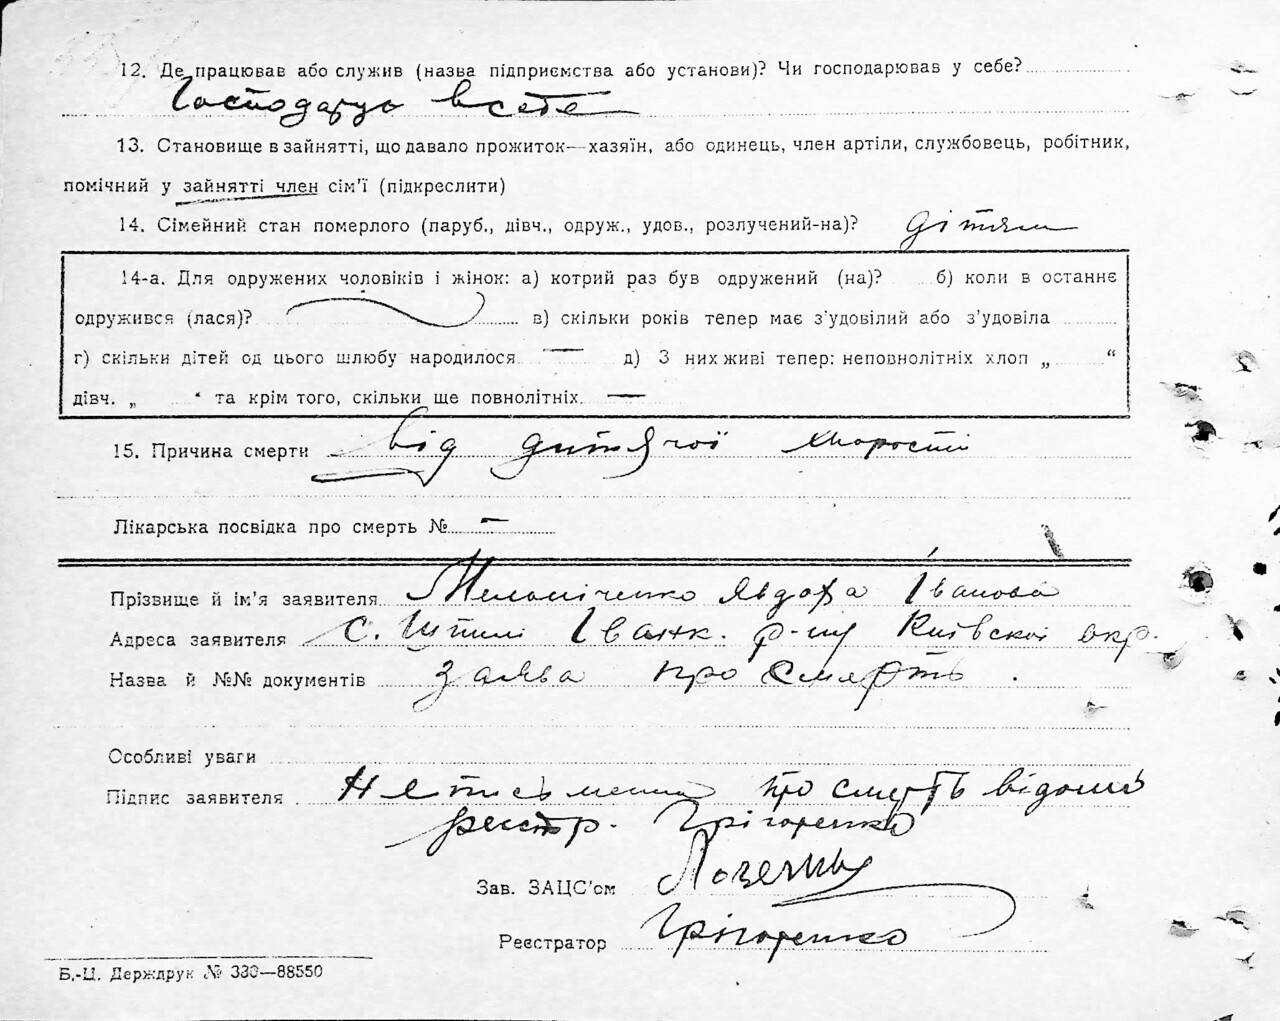 12. Де працював або служив (назва підприємства або установи)? Чи господарював у себе?
Господарує в себе
13. Становище в зайнятті, що давало прожиток—хазяїн, або одинець, член артіли, службовець, робітник,
помічний у зайнятті член сім'ї (підкреслити)
14. Сімейний стан померлого (паруб., дівч., одруж., удов., розлучений-на)?
14-а. Для одружених чоловіків і жінок: а) котрий раз був одружений (на)? б) коли в останнє
одружився (лася)? в) скільки років тепер має з'удовілий або з'удовіла
г) скільки дітей од цього шлюбу народилося — д) З них живі тепер: неповнолітніх хлоп „ “
дівч. „ “ та крім того, скільки ще повнолітніх. —
15. Причина смерти від дитячої хворости
Лікарська посвідка про смерть № —
Прізвище й ім'я заявителя Мельніченко Явдоха Іванова
Адреса заявителя с. Шпилі Іванк. р-ну Київскої окр.
Назва й №№ документів заява про смерть.
Особливі уваги
Підпис заявителя Неписьменна про смерть відомо
реєстр. Грігоренко
Зав. ЗАЦС'ом
Реєстратор Грігоренко
Б.-Ц. Держдрук № 330—88550